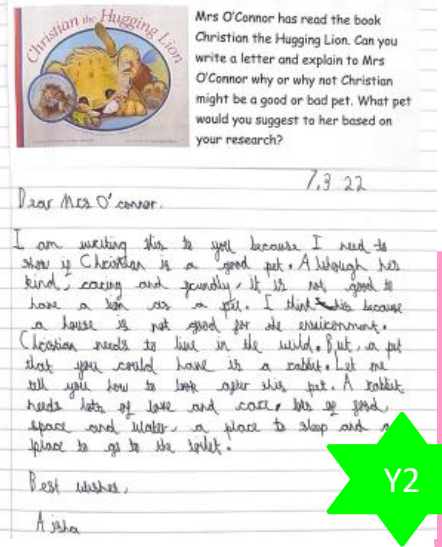 Christian the Hugging Lion
Mrs O'Connor has read the book
Christian the Hugging Lion. Can you
write a letter and explain to Mrs
O'Connor why or why not Christian
might be a good or bad pet. What pet
would you suggest to her based on
your research?
7.3 22
Dear Mrs O'connor.
I am writing this to you because I need to
show if Christian is a good pet. Although he's
kind, caring and friendly, it is not good to
have a lion as a pet. I think this because
a house is not good for the environment.
Christian needs to live in the wild. But, a pet
that you could have is a rabbit. Let me
tell you how to look after this pet. A rabbit
needs lots of love and care, lots of food,
space and water, a place to sleep and a
place to go to the toilet.
Best wishes,
Aisha
Y2